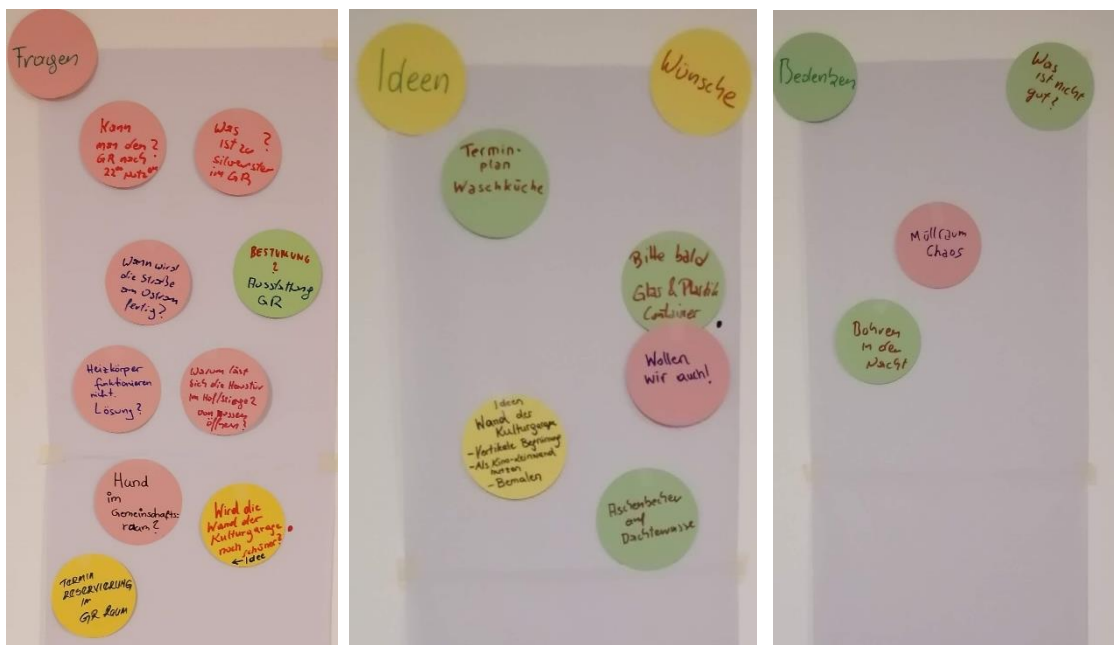 Fragen
Kann
man den ?
GR nach
22°° Nutzen
Was ?
ist zu
Silvester
im GR
Wann wird
die Straße
am Ostrom
fertig?
BESTUHLUNG
?
Ausstattung
GR
Heizkörper
funktionieren
nicht.
Lösung?
Warum läst
sich die Haustür
im Hof/Stiege 2
von aussen
öffnen?
Hund
im
Gemeinschafts-
raum?
Wird die
Wand der
Kulturgarage
noch
schöner?
← Idee
TERMIN
RESERVIERUNG
IM
GR RAUM
Ideen
Wünsche
Termin-
plan
Waschküche
Bitte bald
Glas & Plastik
Container
Wollen
wir auch!
Ideen
Wand der
Kulturgarage
- Vertikale Begrünung
- Als Kino-Leinwand
nutzen
- Bemalen
Aschenbecher
auf
Dachterrasse
Bedenken
Was
ist nicht
gut?
Müllraum
Chaos
Bohren
in der
Nacht